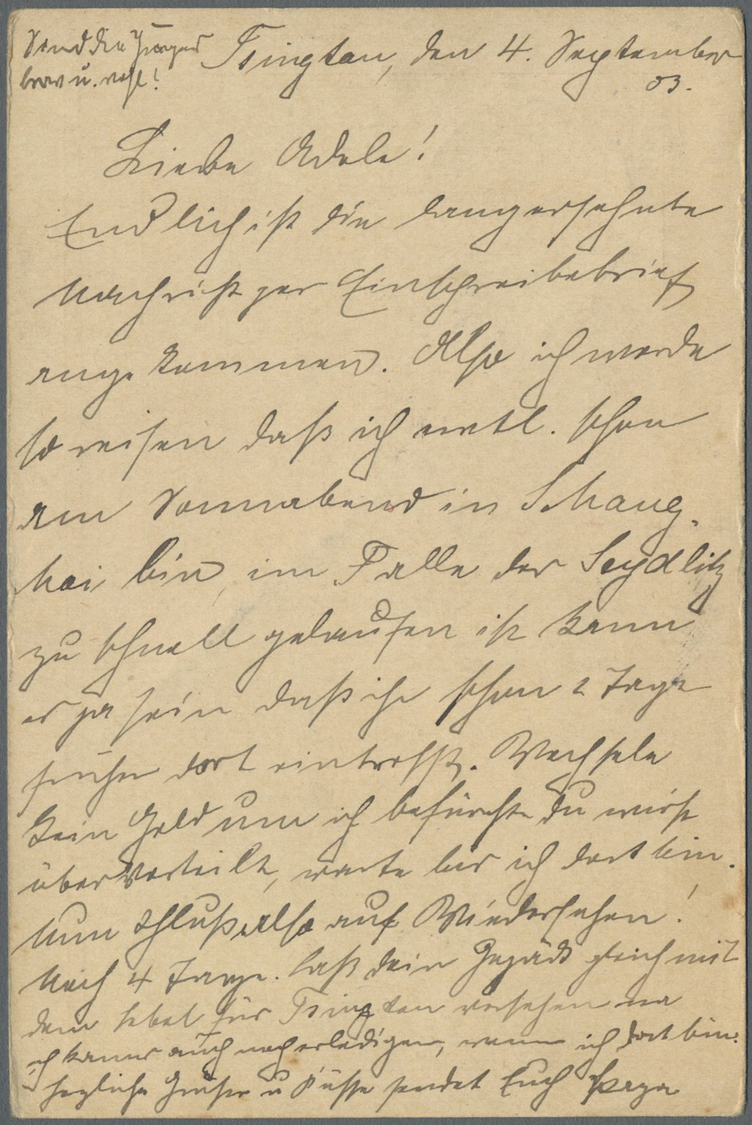 Sind die Jungens
brav u. wohl!
Tsingtau, den 4. September
03.
Liebe Adele!
Endlich ist die langersehnte
Nachricht per Einschreibebrief
angekommen. Also ich werde
so reisen daß ich evtl. schon
am Sonnabend in Schang-
hai bin, im Falle der Seydlitz
zu schnell gelaufen ist kann
es ja sein daß ihr schon 2 Tage
früher dort eintrefft. Wechsele
kein Geld um ich befürchte du wirst
übervorteilt, warte bis ich dort bin.
Nun Schluß also auf Wiedersehen!
Noch 4 Tage. Laß dein Gepäck gleich mit
dem Label für Tsingtau versehen na
ich kanns auch noch erledigen, wenn ich dort bin.
herzliche Grüße u Küsse sendet Euch Papa